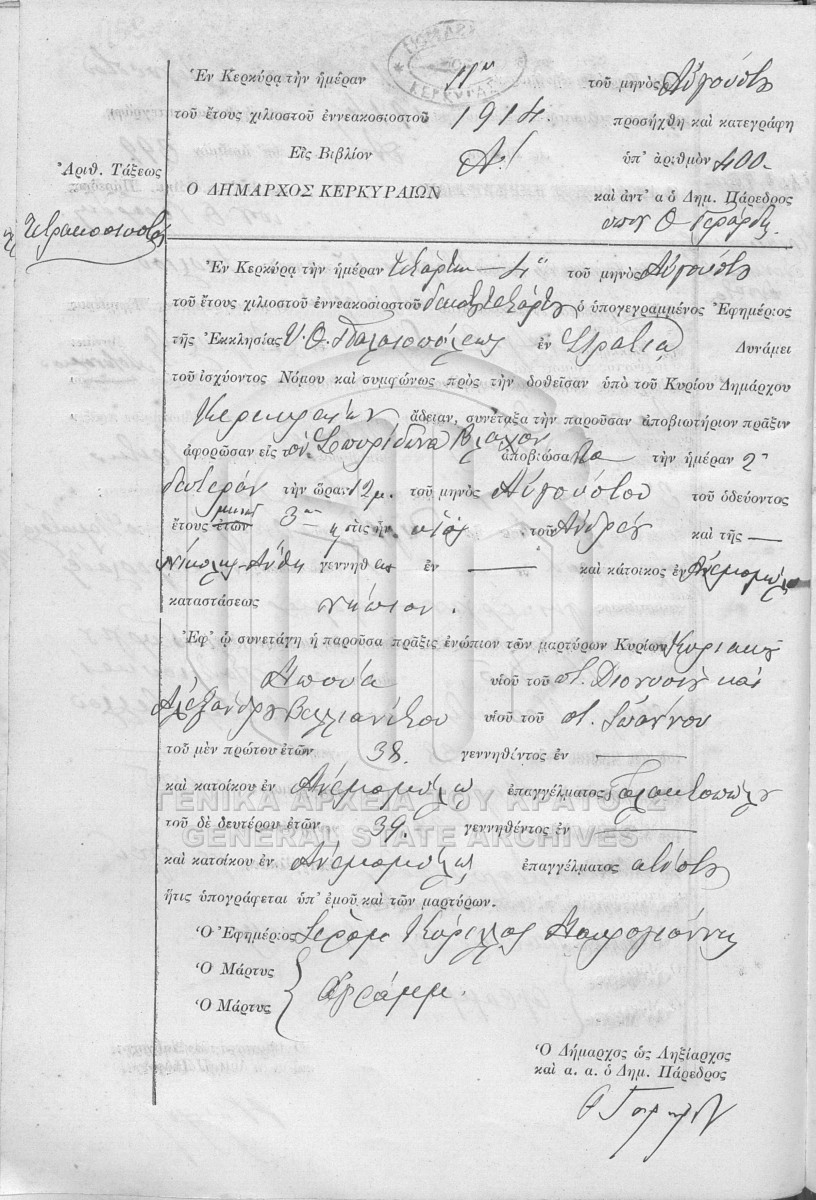 ΚΕΡΚΥΡΑΣ
Ἐν Κερκύρᾳ τὴν ἡμέραν 11ην τοῦ μηνὸς Αὐγούστου
τοῦ ἔτους χιλιοστοῦ ἐννεακοσιοστοῦ 1914 προσήχθη καὶ κατεγράφη
Εἰς Βιβλίον Α! ὑπ' ἀριθμὸν 400-
Ἀριθ. Τάξεως
Ο ΔΗΜΑΡΧΟΣ ΚΕΡΚΥΡΑΙΩΝ καὶ ἀντ' α ὁ Δημ. Πάρεδρος
Ἐν Κερκύρᾳ τὴν ἡμέραν τετάρτην 4ην τοῦ μηνὸς Αὐγούστου
τοῦ ἔτους χιλιοστοῦ ἐννεακοσιοστοῦ δεκάτου τετάρτου ὁ ὑπογεγραμμένος Ἐφημέριος
τῆς Ἐκκλησίας Υ. Θ. Παλαιοπόλεως ἐν Στρατιᾷ Δυνάμει
τοῦ ἰσχύοντος Νόμου καὶ συμφώνως πρὸς τὴν δοθεῖσαν ὑπὸ τοῦ Κυρίου Δημάρχου
Κερκυραίων ἄδειαν, συνέταξα τὴν παροῦσαν ἀποβιωτήριον πρᾶξιν
ἀφορῶσαν εἰς τὸν Σπυρίδωνα Βλάχον ἀποβιώσαντα τὴν ἡμέραν 2αν
δευτέραν τὴν ὥραν 12 μ. τοῦ μηνὸς Αὐγούστου τοῦ ὁδεύοντος
ἔτους ἐτῶν μηνῶν 3ων ὅστις ἦν υἱὸς τοῦ Ἀνδρέου καὶ τῆς —
γεννηθεὶς ἐν — καὶ κάτοικος ἐν Ἀνεμομύλῳ
καταστάσεως νήπιον.
Ἐφ' ᾧ συνετάγη ἡ παροῦσα πρᾶξις ἐνώπιον τῶν μαρτύρων Κυρίων Κυριακοῦ
υἱοῦ τοῦ ποτ. Διονυσίου καὶ
Ἀλεξάνδρου Βαλλιανίτου υἱοῦ τοῦ ποτ. Ἰωάννου
τοῦ μὲν πρώτου ἐτῶν 38. γεννηθέντος ἐν —
καὶ κατοίκου ἐν Ἀνεμομύλῳ ἐπαγγέλματος Γαλακτοπώλου
τοῦ δὲ δευτέρου ἐτῶν 39. γεννηθέντος ἐν —
καὶ κατοίκου ἐν Ἀνεμομύλῳ ἐπαγγέλματος κτίστου
ἥτις ὑπογράφεται ὑπ' ἐμοῦ καὶ τῶν μαρτύρων.
Ὁ Ἐφημέριος Ἱερομ. Κύριλλος Μαυρογιάννης
Ὁ Μάρτυς
Ὁ Μάρτυς Ἀγράμμ.
Ὁ Δήμαρχος ὡς Ληξίαρχος
καὶ α. α. ὁ Δημ. Πάρεδρος
ΓΕΝΙΚΑ ΑΡΧΕΙΑ ΤΟΥ ΚΡΑΤΟΥΣ
GENERAL STATE ARCHIVES